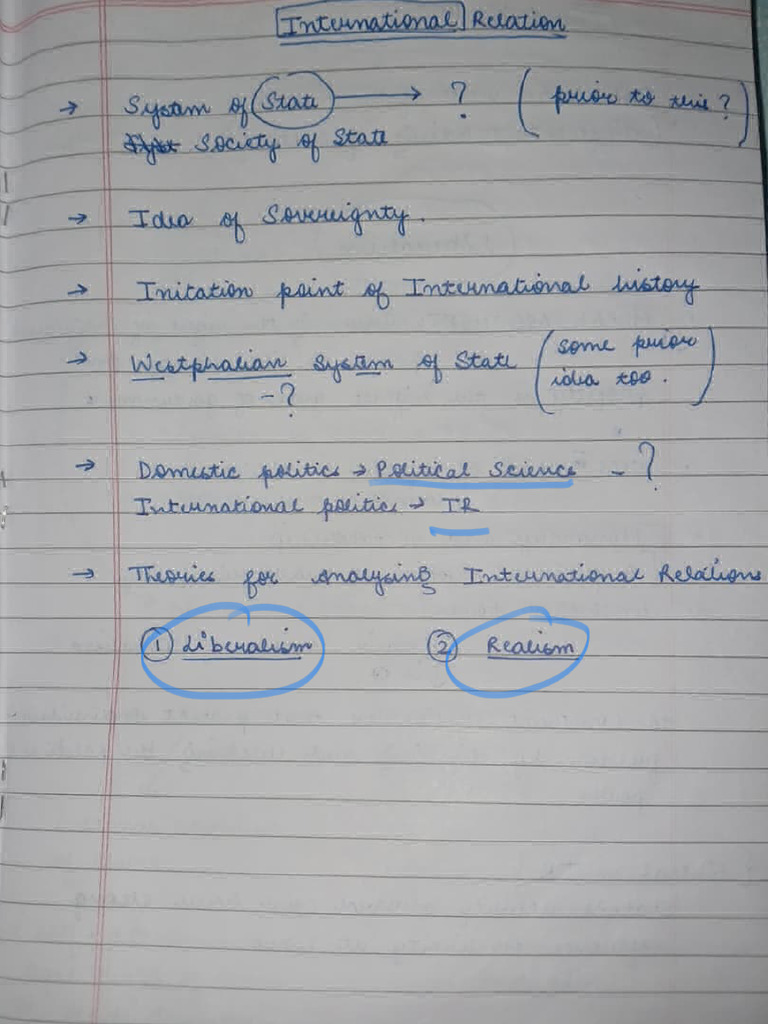 International Relation
→ System of State → ? (prior to this?)
Society of State
→ Idea of Sovereignty.
→ Initation point of International history
→ Westphalian System of State (some prior
idea too.)
- ?
→ Domestic politics → Political Science - ?
International politics → IR
→ Theories for analysing International Relations
① Liberalism ② Realism